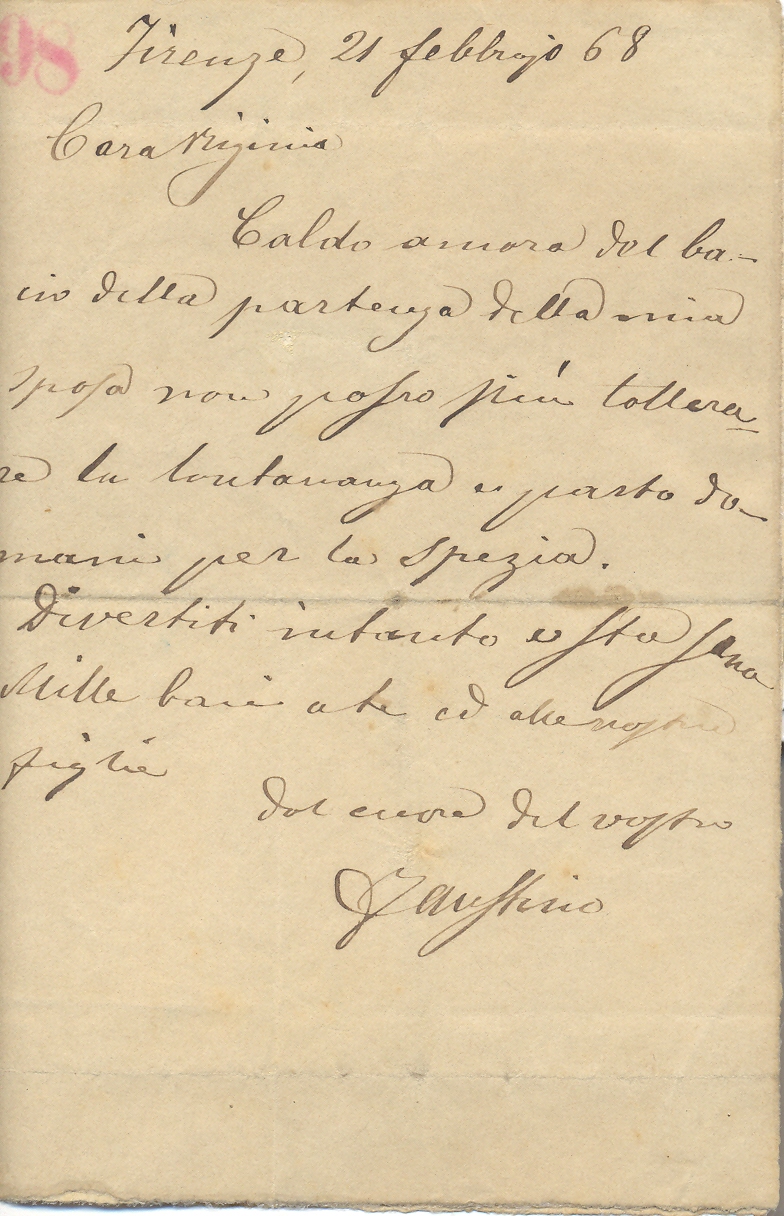 98
Firenze, 21 febbrajo 68
Cara Virginia
Caldo ancora del ba-
cio della partenza della mia
sposa non posso più tollera-
re la lontananza e parto do-
mani per la Spezia.
Divertiti intanto e sta sana
Mille baci a te ed alle nostre
figlie
dal cuore del vostro
Faustino